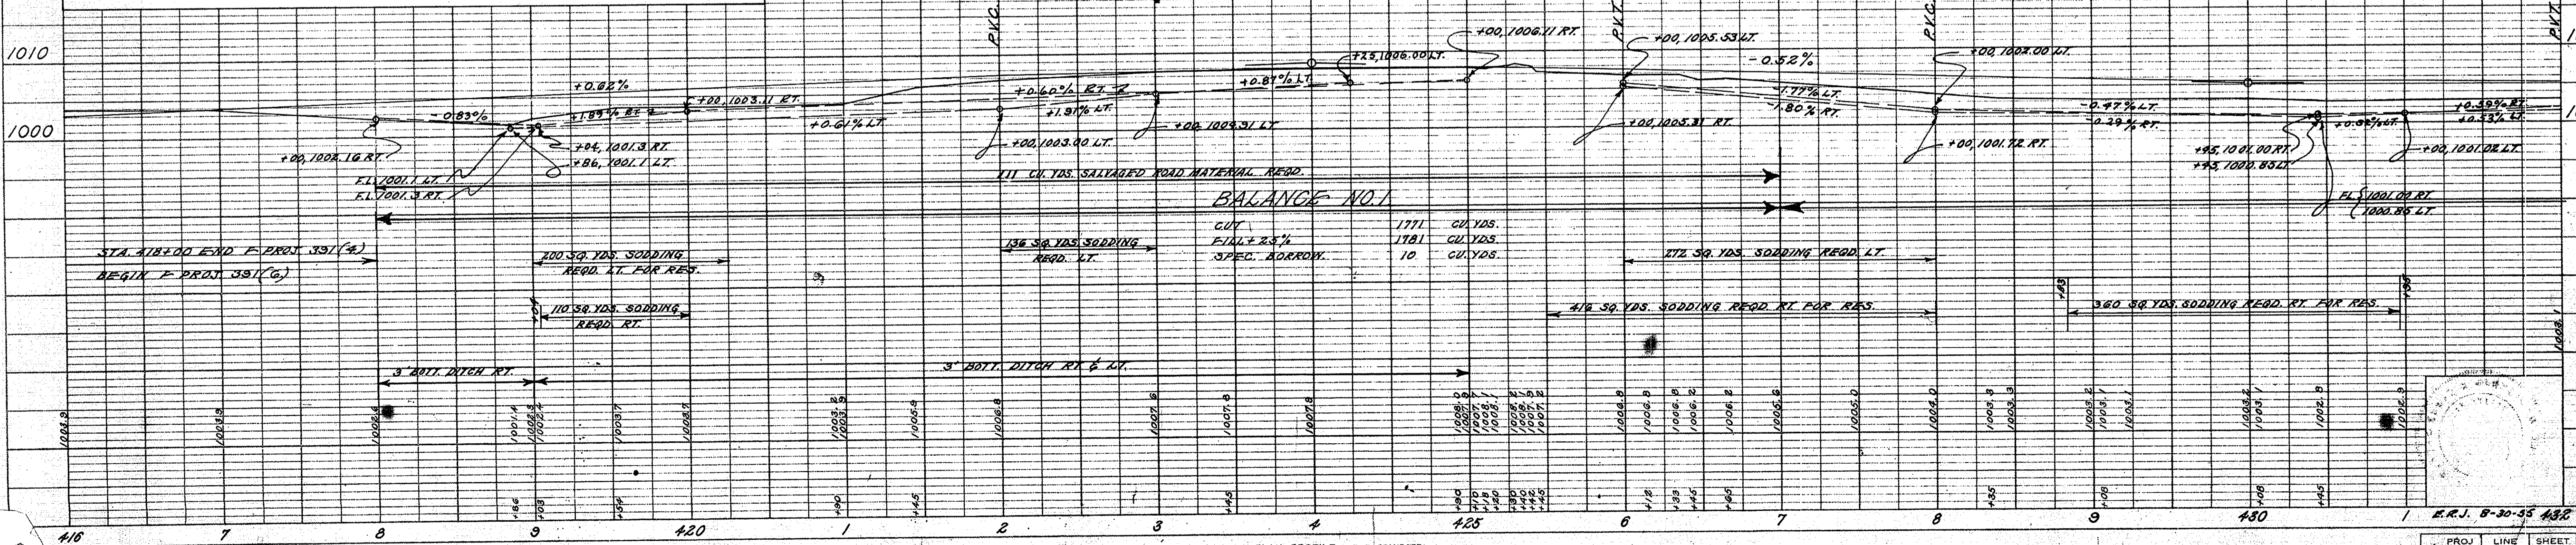 P.V.C.
P.V.T.
P.V.C.
P.V.T.
1010
1000
+0.62%
-0.83%
+1.89% RT.
+00, 1003.11 RT.
+0.61% LT.
+00, 1002.16 RT.
+04, 1001.3 RT.
+86, 1001.1 LT.
F.L. 1001.1 LT.
F.L. 1001.3 RT.
+0.60% RT.
+1.91% LT.
+00, 1003.00 LT.
+00, 1004.91 LT.
+0.87% LT.
+25, 1006.00 LT.
+00, 1006.11 RT.
+00, 1005.53 LT.
-0.52%
-1.77% LT.
-1.80% RT.
+00, 1005.31 RT.
+00, 1002.00 LT.
+00, 1001.72 RT.
-0.47% LT.
-0.29% RT.
+45, 1001.00 RT.
+45, 1000.85 LT.
+0.32% LT.
+0.39% RT.
+0.53% LT.
+00, 1001.02 LT.
FL { 1001.00 RT.
1000.85 LT.
111 CU. YDS. SALVAGED ROAD MATERIAL REQD.
BALANCE NO. 1.
CUT 1771 CU. YDS.
FILL + 25% 1781 CU. YDS.
SPEC. BORROW 10 CU. YDS.
STA. 418+00 END F PROJ. 391(4)
BEGIN F PROJ. 391(6)
200 SQ. YDS. SODDING
REQD. LT. FOR RES.
136 SQ. YDS. SODDING
REQD. LT.
272 SQ. YDS. SODDING REQD. LT.
+04
110 SQ. YDS. SODDING
REQD. RT.
416 SQ. YDS. SODDING REQD. RT. FOR RES.
+83
360 SQ. YDS. SODDING REQD. RT. FOR RES.
3' BOTT. DITCH RT.
3' BOTT. DITCH RT. & LT.
1003.1
1003.9
1003.9
1002.6
1001.4
1002.4
1003.7
1003.7
1003.2
1003.9
1005.9
1006.8
1007.6
1007.8
1007.8
1008.0
1007.9
1007.7
1008.1
1008.1
1008.2
1008.1
1007.9
1007.2
1006.8
1006.8
1006.8
1006.2
1006.2
1005.6
1005.0
1004.0
1003.3
1003.3
1003.2
1003.1
1003.1
1003.2
1003.1
1002.8
1002.9
+86
+03
+54
+90
+45
+45
+90
+10
+18
+20
+30
+40
+42
+45
+12
+33
+45
+65
+35
+08
+08
+45
416 7 8 9 420 1 2 3 4 425 6 7 8 9 430 1 432
E.R.J. 8-30-55
PROJ LINE SHEET